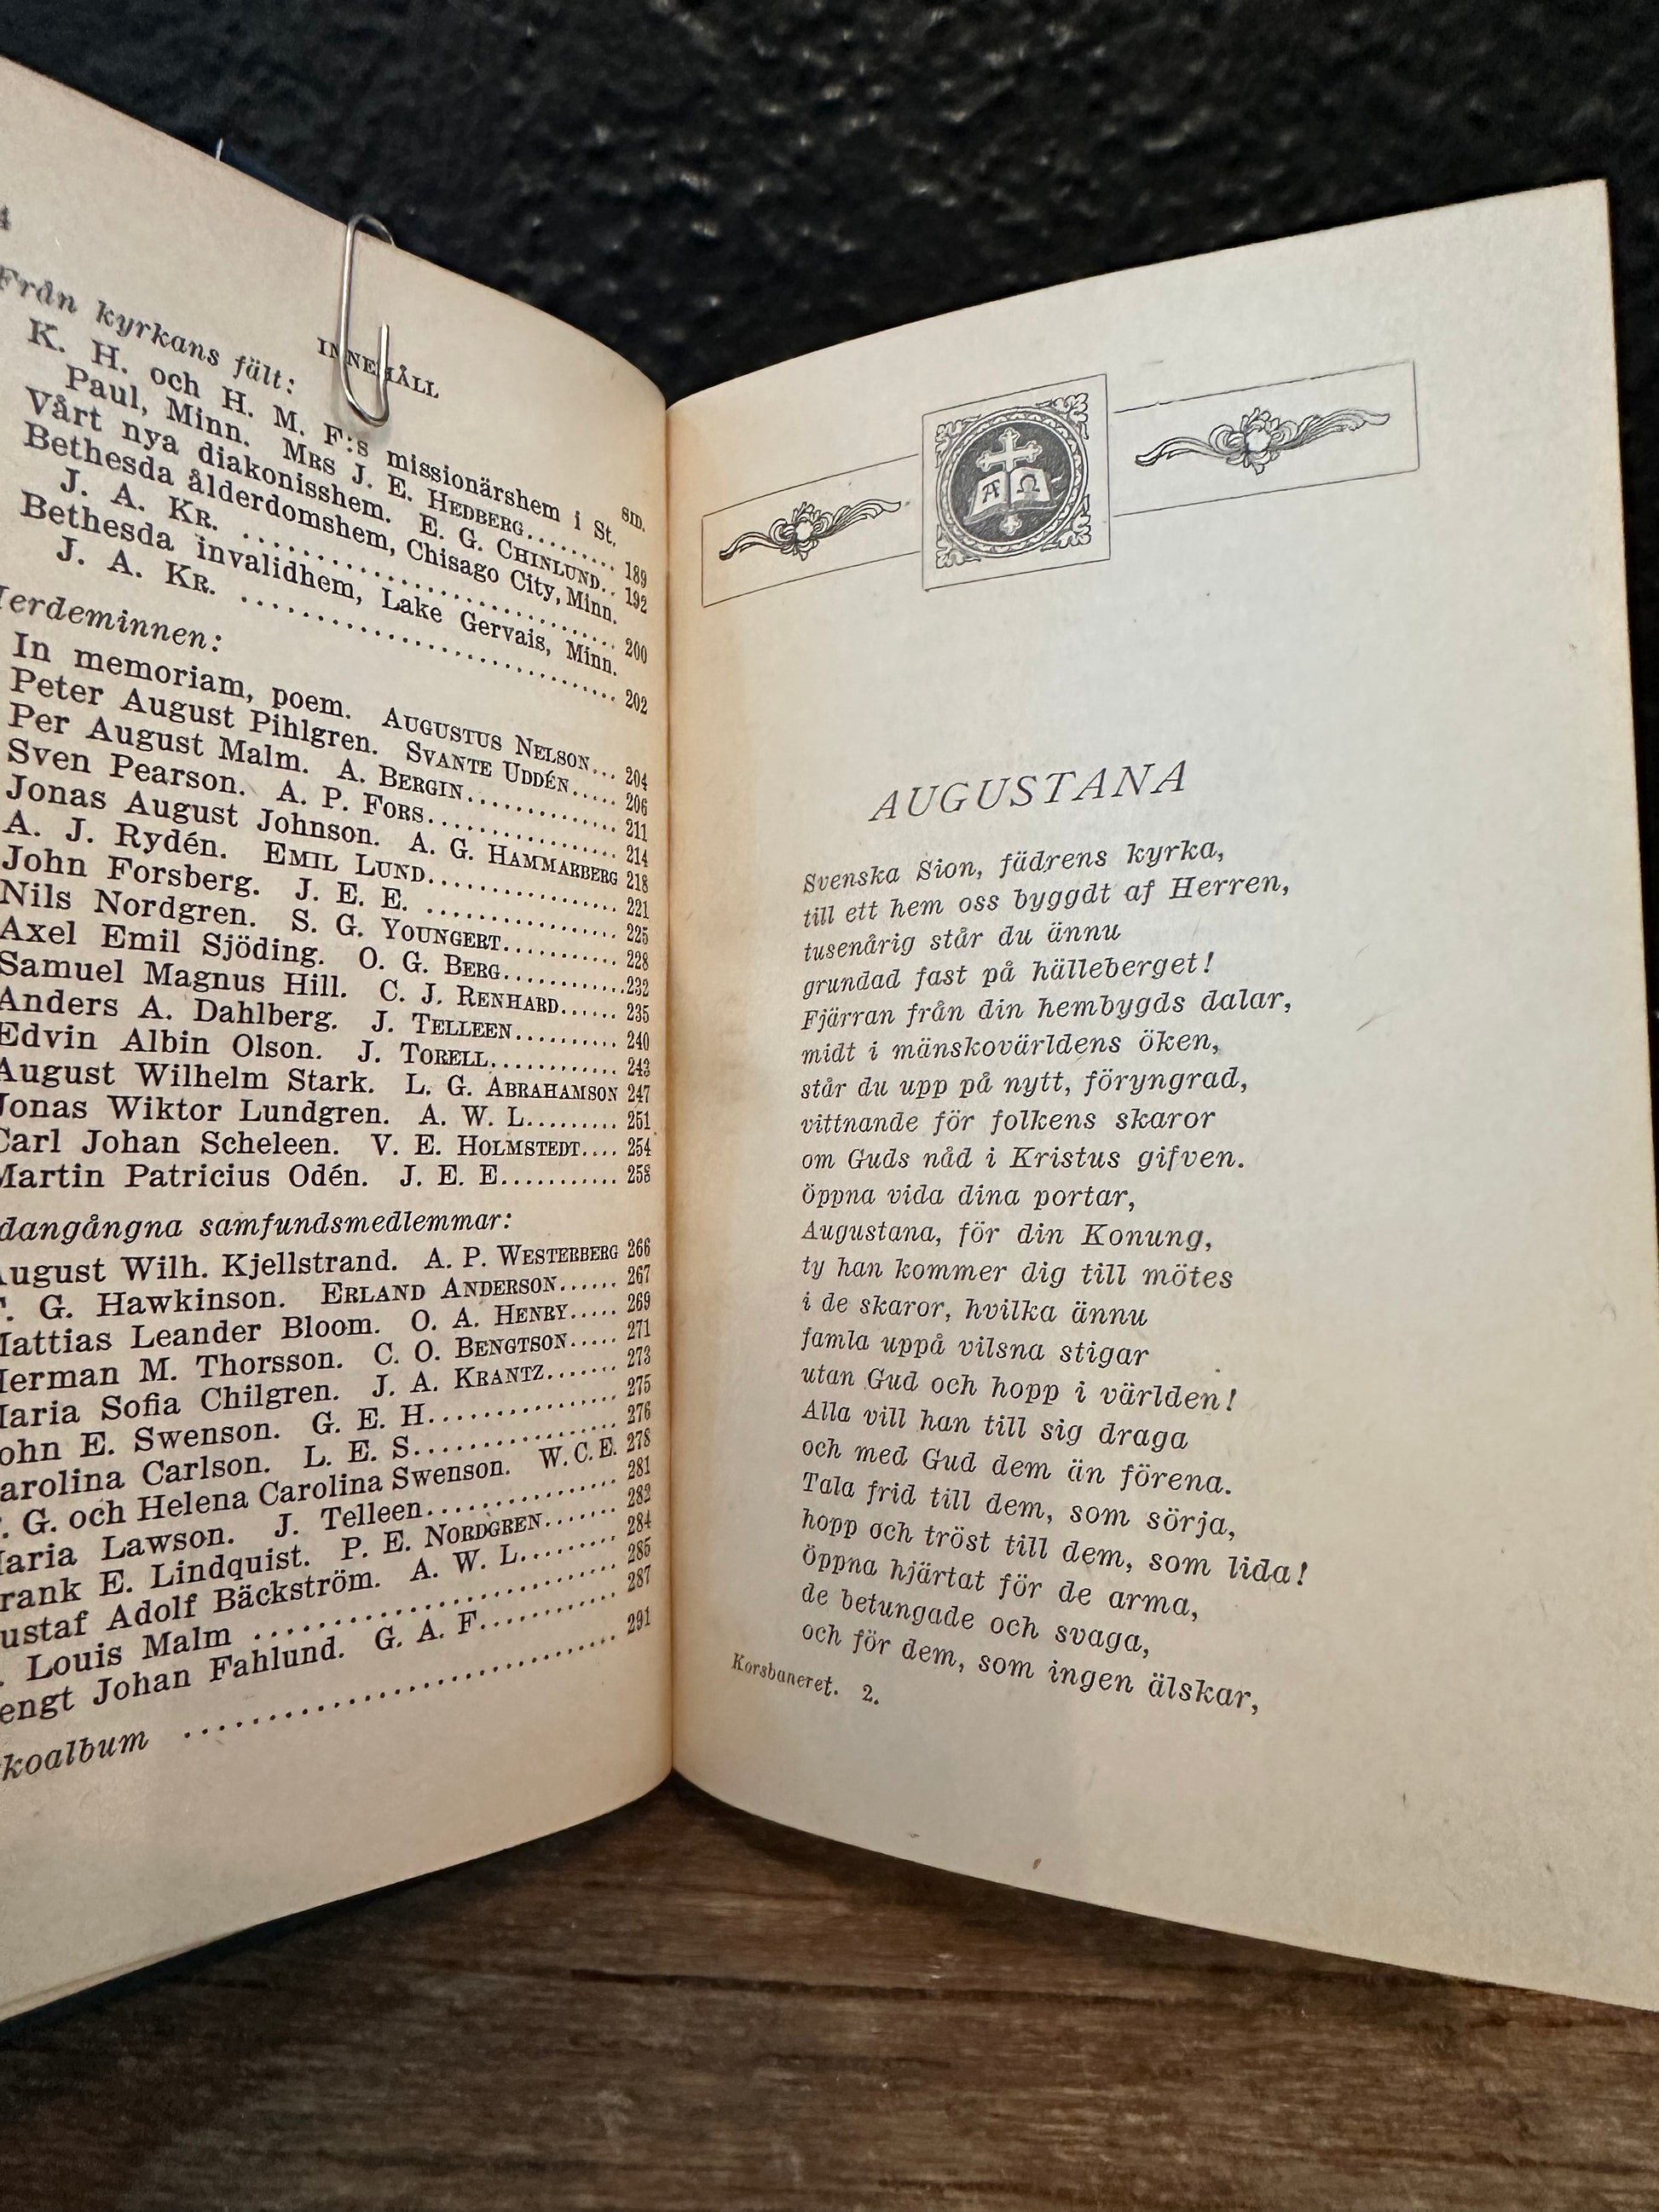 4
INNEHÅLL
SID.
Från kyrkans fält:
K. H. och H. M. F:s missionärshem i St.
Paul, Minn. MRS J. E. HEDBERG......... 189
Vårt nya diakonisshem. E. G. CHINLUND.. 192
Bethesda ålderdomshem, Chisago City, Minn.
J. A. KR. ........................ 200
Bethesda invalidhem, Lake Gervais, Minn.
J. A. KR. ........................ 202
Herdeminnen:
In memoriam, poem. AUGUSTUS NELSON... 204
Peter August Pihlgren. SVANTE UDDÉN..... 206
Per August Malm. A. BERGIN............. 211
Sven Pearson. A. P. FORS................ 214
Jonas August Johnson. A. G. HAMMARBERG 218
A. J. Rydén. EMIL LUND................ 221
John Forsberg. J. E. E. ................ 225
Nils Nordgren. S. G. YOUNGERT.......... 228
Axel Emil Sjöding. O. G. BERG...........232
Samuel Magnus Hill. C. J. RENHARD...... 235
Anders A. Dahlberg. J. TELLEEN.......... 240
Edvin Albin Olson. J. TORELL............ 243
August Wilhelm Stark. L. G. ABRAHAMSON 247
Jonas Wiktor Lundgren. A. W. L......... 251
Carl Johan Scheleen. V. E. HOLMSTEDT.... 254
Martin Patricius Odén. J. E. E........... 258
dangångna samfundsmedlemmar:
August Wilh. Kjellstrand. A. P. WESTERBERG 266
. G. Hawkinson. ERLAND ANDERSON...... 267
Mattias Leander Bloom. O. A. HENRY..... 269
Herman M. Thorsson. C. O. BENGTSON..... 271
Maria Sofia Chilgren. J. A. KRANTZ....... 273
ohn E. Swenson. G. E. H................ 275
arolina Carlson. L. E. S................. 276
. G. och Helena Carolina Swenson. W. C. E. 278
Maria Lawson. J. Telleen................ 281
rank E. Lindquist. P. E. NORDGREN....... 282
ustaf Adolf Bäckström. A. W. L......... 284
. Louis Malm ........................ 285
engt Johan Fahlund. G. A. F........... 287
koalbum ............................ 291
AΩ
AUGUSTANA
Svenska Sion, fädrens kyrka,
till ett hem oss byggdt af Herren,
tusenårig står du ännu
grundad fast på hälleberget!
Fjärran från din hembygds dalar,
midt i mänskovärldens öken,
står du upp på nytt, föryngrad,
vittnande för folkens skaror
om Guds nåd i Kristus gifven.
Öppna vida dina portar,
Augustana, för din Konung,
ty han kommer dig till mötes
i de skaror, hvilka ännu
famla uppå vilsna stigar
utan Gud och hopp i världen!
Alla vill han till sig draga
och med Gud dem än förena.
Tala frid till dem, som sörja,
hopp och tröst till dem, som lida!
Öppna hjärtat för de arma,
de betungade och svaga,
och för dem, som ingen älskar,
Korsbaneret. 2.